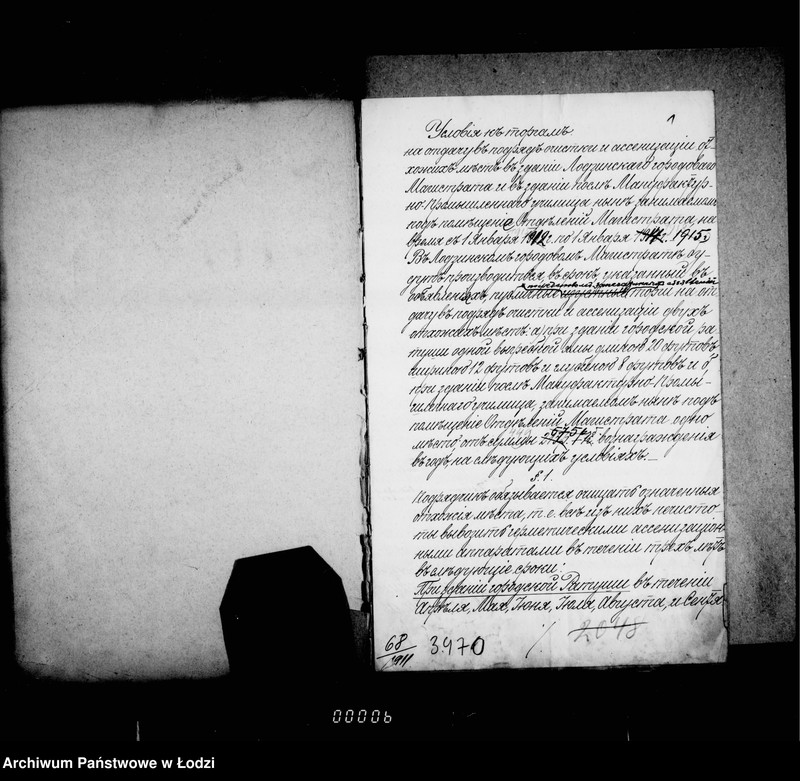 1
Условія къ торгамъ
на отдачу въ подрядъ очистки и ассенизаціи от-
хожихъ мѣстъ въ зданіи Лодзинскаго городоваго
Магистрата и въ зданіи послѣ Мануфактур-
но-Промышленнаго училища нынѣ занимаемомъ
подъ помѣщеніе Отдѣленій Магистрата, на
время съ 1 Января 1912 г. по 1 Января 1915 г.
Въ Лодзинскомъ городовомъ Магистратѣ бу-
дутъ производиться, въ срокъ, указанный въ
объявленіяхъ, торги на от-
дачу въ подрядъ очистки и ассенизаціи двухъ
отхожихъ мѣстъ: а) при зданіи городской ра-
туши одной выгребной ямы длиною 20 футовъ
шириною 12 футовъ и глубиною 8 футовъ и б)
при зданіи послѣ Мануфактурно-Промы-
шленнаго училища, занимаемомъ нынѣ подъ
помѣщеніе Отдѣленій Магистрата одно
мѣсто, отъ суммы 575 вознагражденія
въ годъ, на слѣдующихъ условіяхъ:
§ 1.
Подрядчикъ обязывается очищать означенныя
отхожія мѣста, т. е. всѣ изъ нихъ нечисто-
ты вывозить герметическими ассенизаціон-
ными аппаратами въ теченіи трехъ лѣтъ
въ слѣдующіе сроки:
При зданіи городской Ратуши въ теченіи
Апрѣля, Мая, Іюня, Іюля, Августа, и Сентя-
68/1911 3970 ./. 2048
00006
Archiwum Państwowe w Łodzi